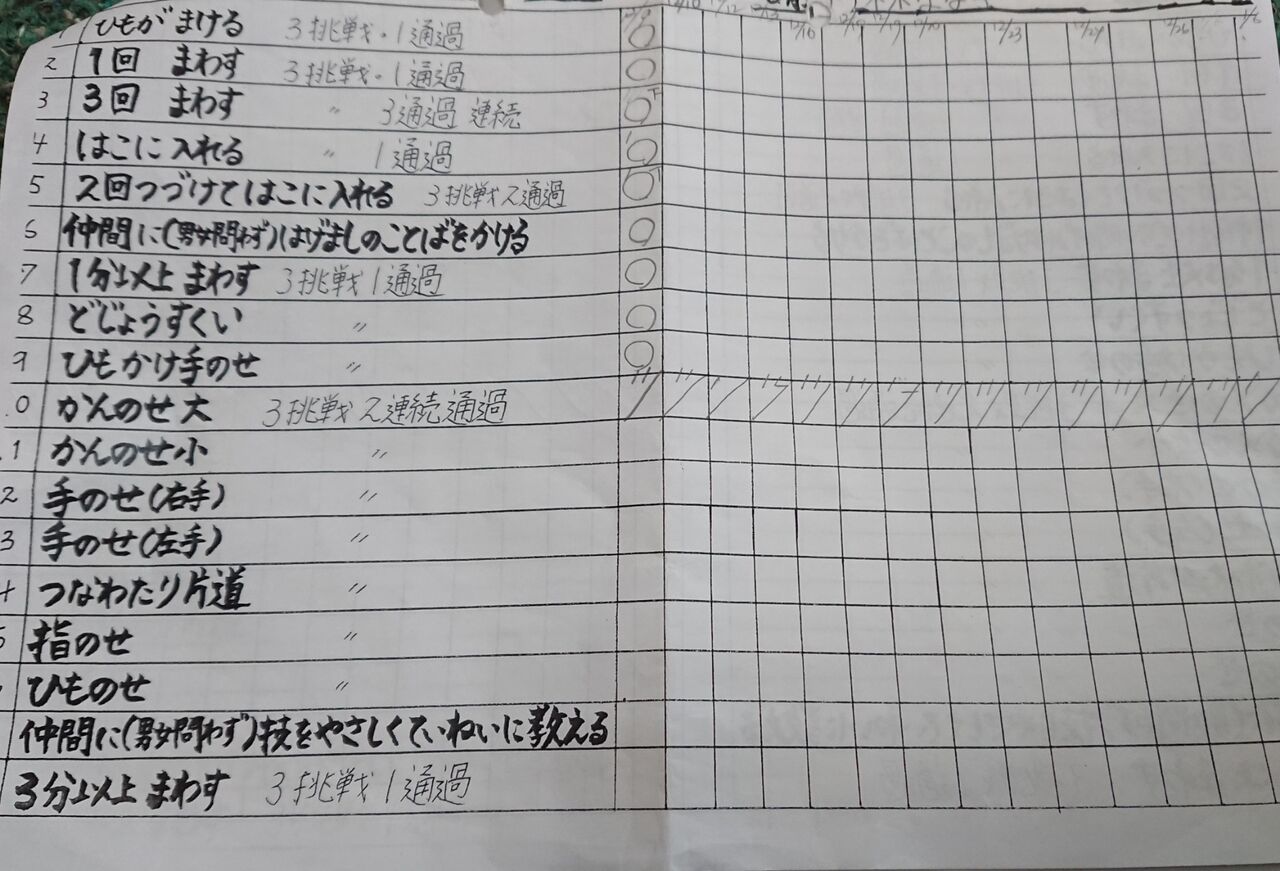 ひもがまける 3挑戦・1通過
2 1回 まわす 3挑戦・1通過
3 3回 まわす 〃 3通過 連続
4 はこに入れる 〃 1通過
5 2回つづけてはこに入れる 3挑戦2通過
6 仲間に(男女問わず)はげましのことばをかける
7 1分以上 まわす 3挑戦1通過
8 どじょうすくい 〃
9 ひもかけ手のせ 〃
0 かんのせ大 3挑戦2連続通過
1 かんのせ小 〃
2 手のせ(右手) 〃
3 手のせ(左手) 〃
つなわたり片道 〃
指のせ 〃
ひものせ 〃
仲間に(男女問わず)技をやさしくていねいに教える
3分以上 まわす 3挑戦1通過